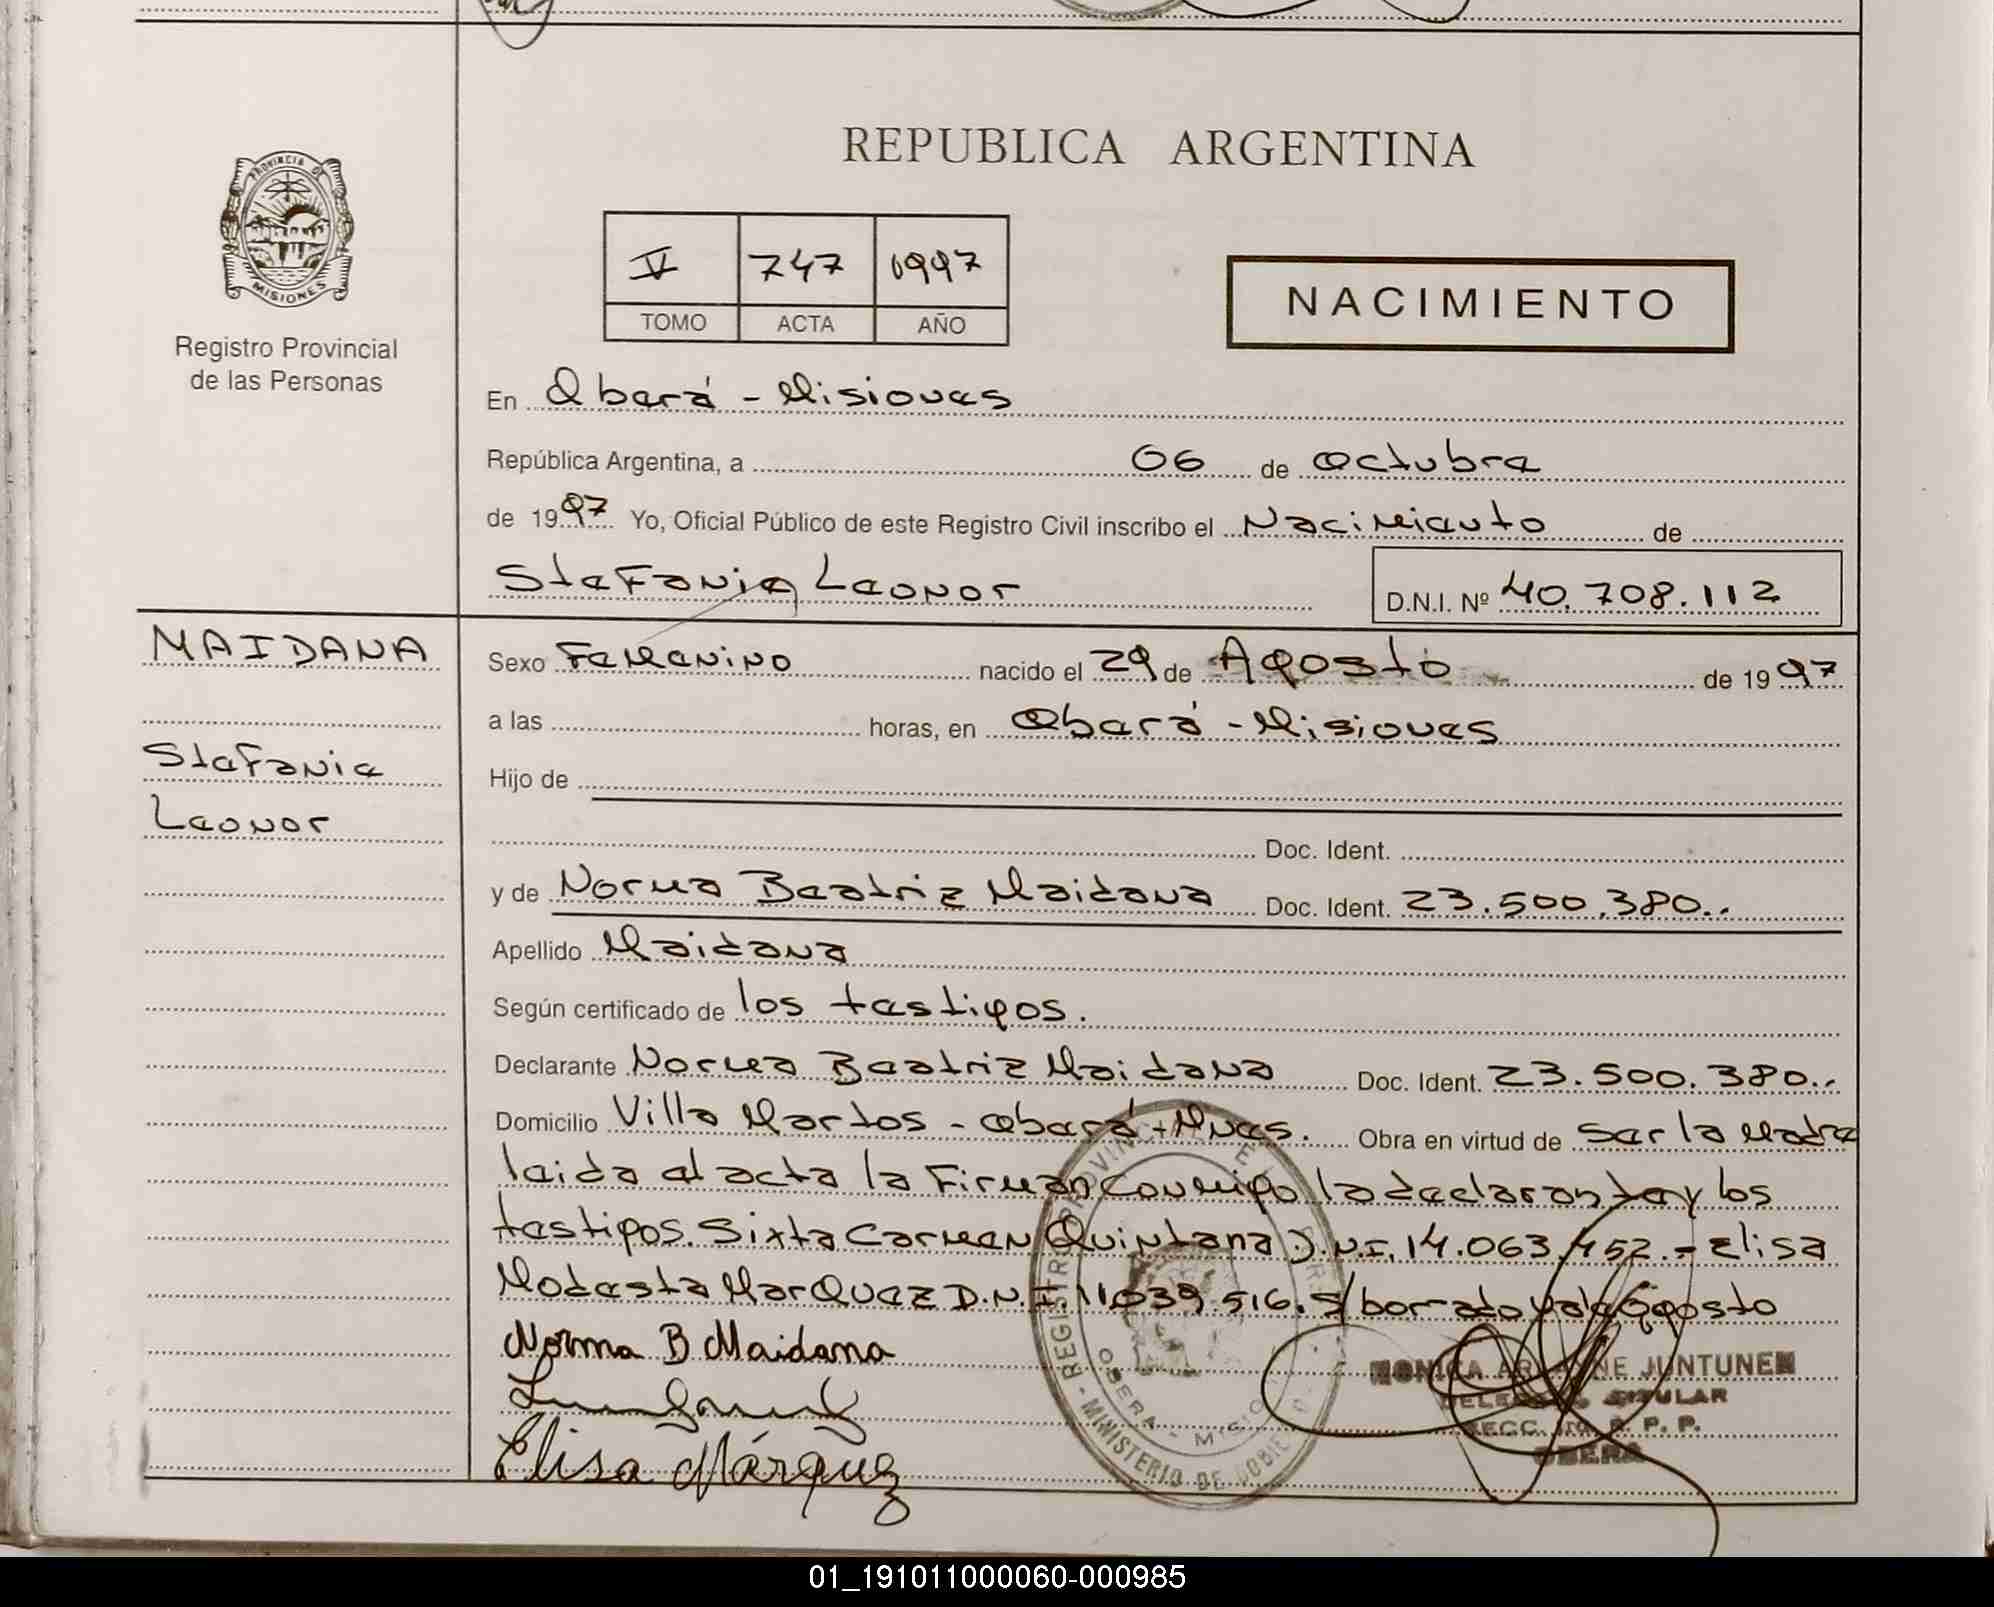 REPUBLICA ARGENTINA
PROVINCIA DE
MISIONES
Registro Provincial
de las Personas
V 747 1997
TOMO ACTA AÑO
NACIMIENTO
En Oberá - Misiones
República Argentina, a 06 de Octubre
de 1997 Yo, Oficial Público de este Registro Civil inscribo el Nacimiento de
Stefania Leonor
D.N.I. Nº 40.708.112
MAIDANA
Stefania
Leonor
Sexo Femenino nacido el 29 de Agosto de 1997
a las horas, en Oberá - Misiones
Hijo de
Doc. Ident.
y de Norma Beatriz Maidana Doc. Ident. 23.500.380..
Apellido Maidana
Según certificado de los testigos.
Declarante Norma Beatriz Maidana Doc. Ident. 23.500.380..
Domicilio Villa Martos - Oberá - Mnes. Obra en virtud de ser la Madre
leida el acta la Firman Conmigo la declarante y los
testigos. Sixta Carmen Quintana D.N.I. 14.063.452.- Elisa
Modesta MarQuez D.N.I. 11.039.516. S/borrado vale agosto
Norma B Maidana
Elisa Márquez
REGISTRO PROVINCIAL DE
MINISTERIO DE GOBIERNO
OBERA - MISIONES
MONICA ARIANNE JUNTUNEN
DELEGADA TITULAR
SECC. R. P. P.
OBERA
01_191011000060-000985